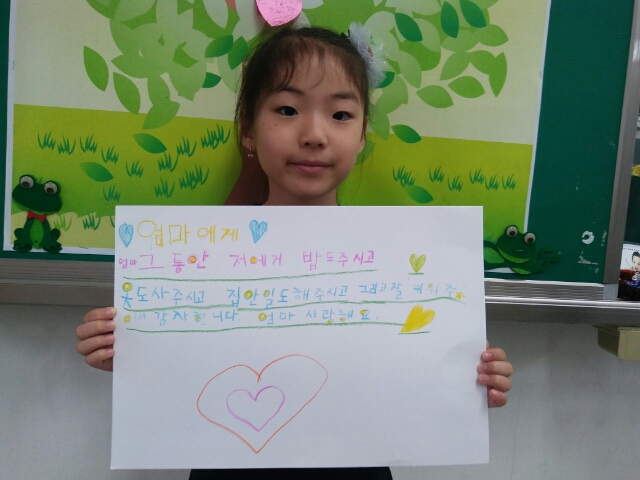 엄마에게
엄마 그동안 저에게 밥도주시고
옷도사주시고 집안일도해주시고 그리고잘 키워주
셔서 감사합니다 엄마 사랑해요.